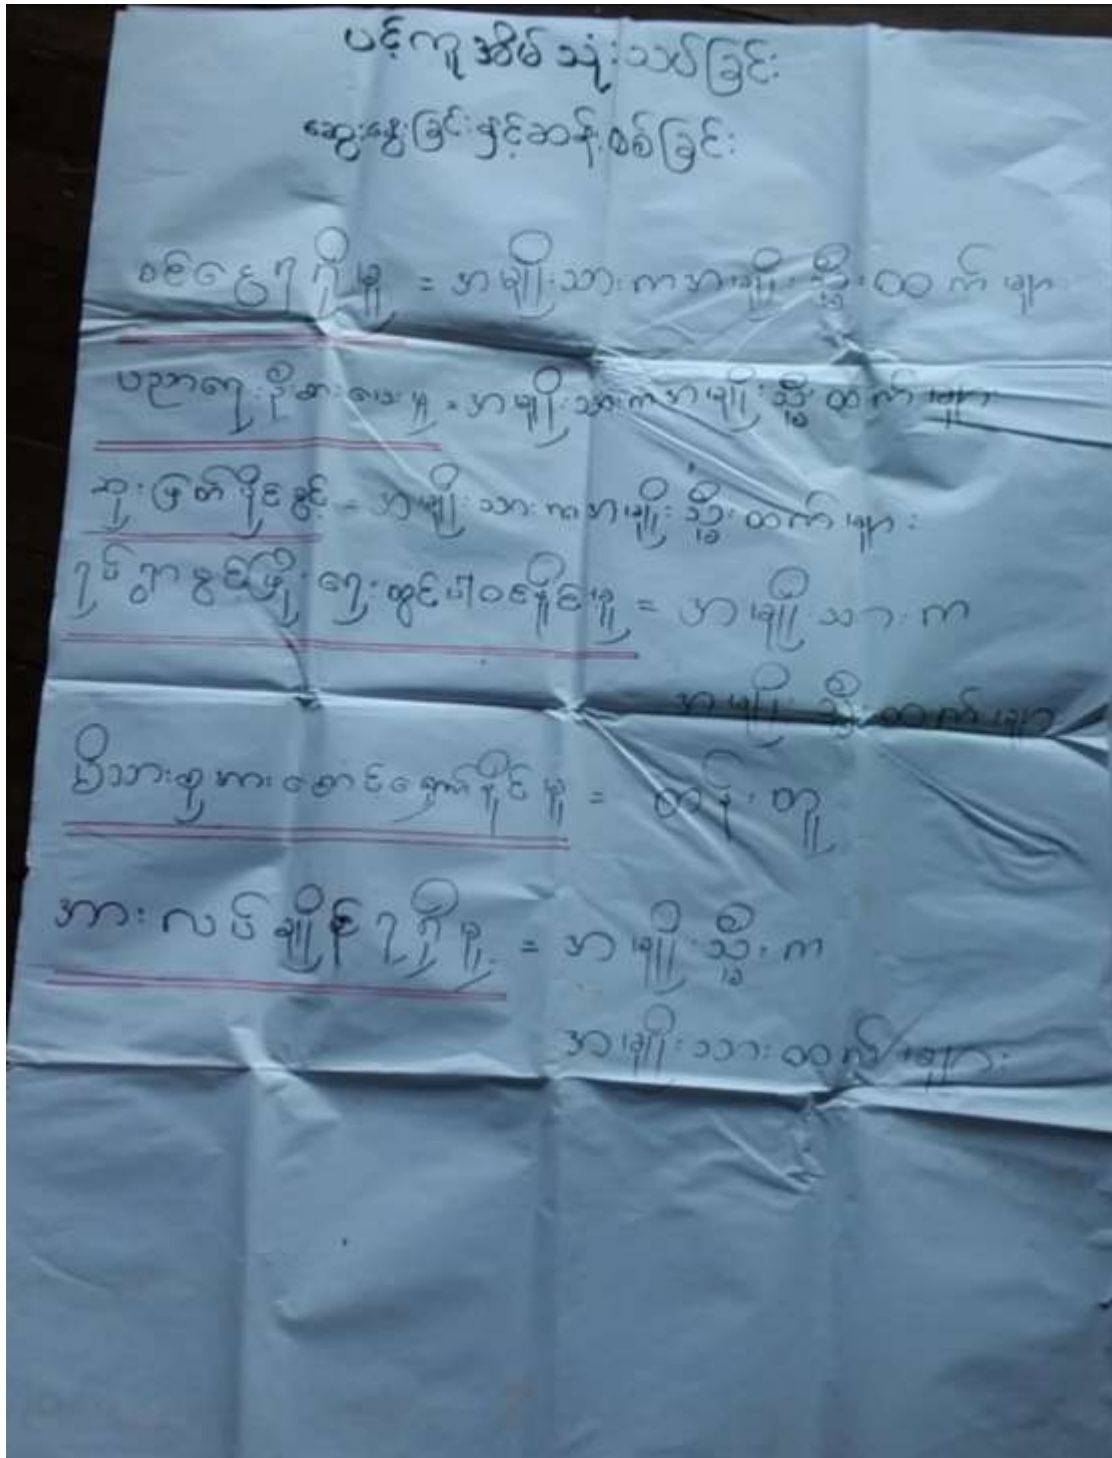 ပင့်ကူအိမ်သုံးသပ်ခြင်း
ဆွေးနွေးခြင်းနှင့်ဆန်းစစ်ခြင်း
ဝင်ငွေရရှိမှု = အမျိုးသားကအမျိုးသ္မီးထက်များ
ပညာရေးဦးစားပေးမှု = အမျိုးသားကအမျိုးသ္မီးထက်များ
ဆုံးဖြတ်ပိုင်ခွင့် = အမျိုးသားကအမျိုးသ္မီးထက်များ
ရပ်ရွာဖွင့်ဖြိုးရေးတွင်ပါဝင်နိုင်မှု = အမျိုးသားက
အမျိုးသ္မီးထက်များ
မိသားစုအားစောင့်ရှောက်နိုင်မှု = တန်းတူ
အားလပ်ချိန်ရရှိမှု = အမျိုးသ္မီးက
အမျိုးသားထက်များ